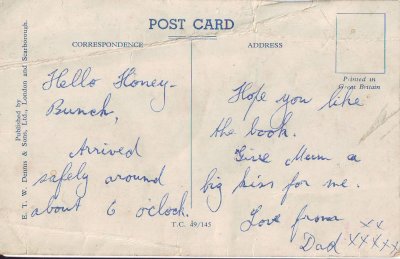 POST CARD
CORRESPONDENCE
ADDRESS
Printed in
Great Britain
Published by
E. T. W. Dennis & Sons, Ltd., London and Scarborough.
Hello Honey-
Bunch,
Arrived
safely around
about 6 o'clock.
T.C. 49/145
Hope you like
the book.
Give Mum a
big kiss for me.
Love from
Dad xx
xxxxx